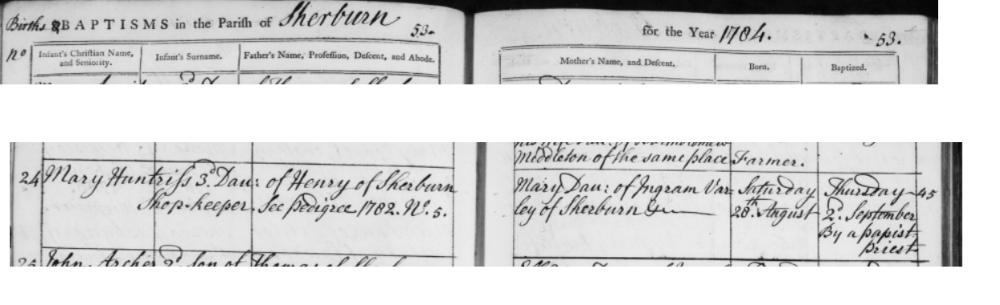 Births & BAPTISMS in the Parish of Sherburn 53.
for the Year 1784. 53.
No
Infant's Christian Name, and Seniority.
Infant's Surname.
Father's Name, Profession, Descent, and Abode.
Mother's Name, and Descent.
Born.
Baptized.
Middleton of the same place Farmer.
24 Mary Huntriss 3d. Dau: of Henry of Sherburn
Shop-keeper See pedigree 1782. No. 5.
Mary Dau: of Ingram Var-
ley of Sherburn
Saturday
28th. August
Thursday 45
2d. September
By a papist
priest
25 John Archer 2d. Son of Thomas of